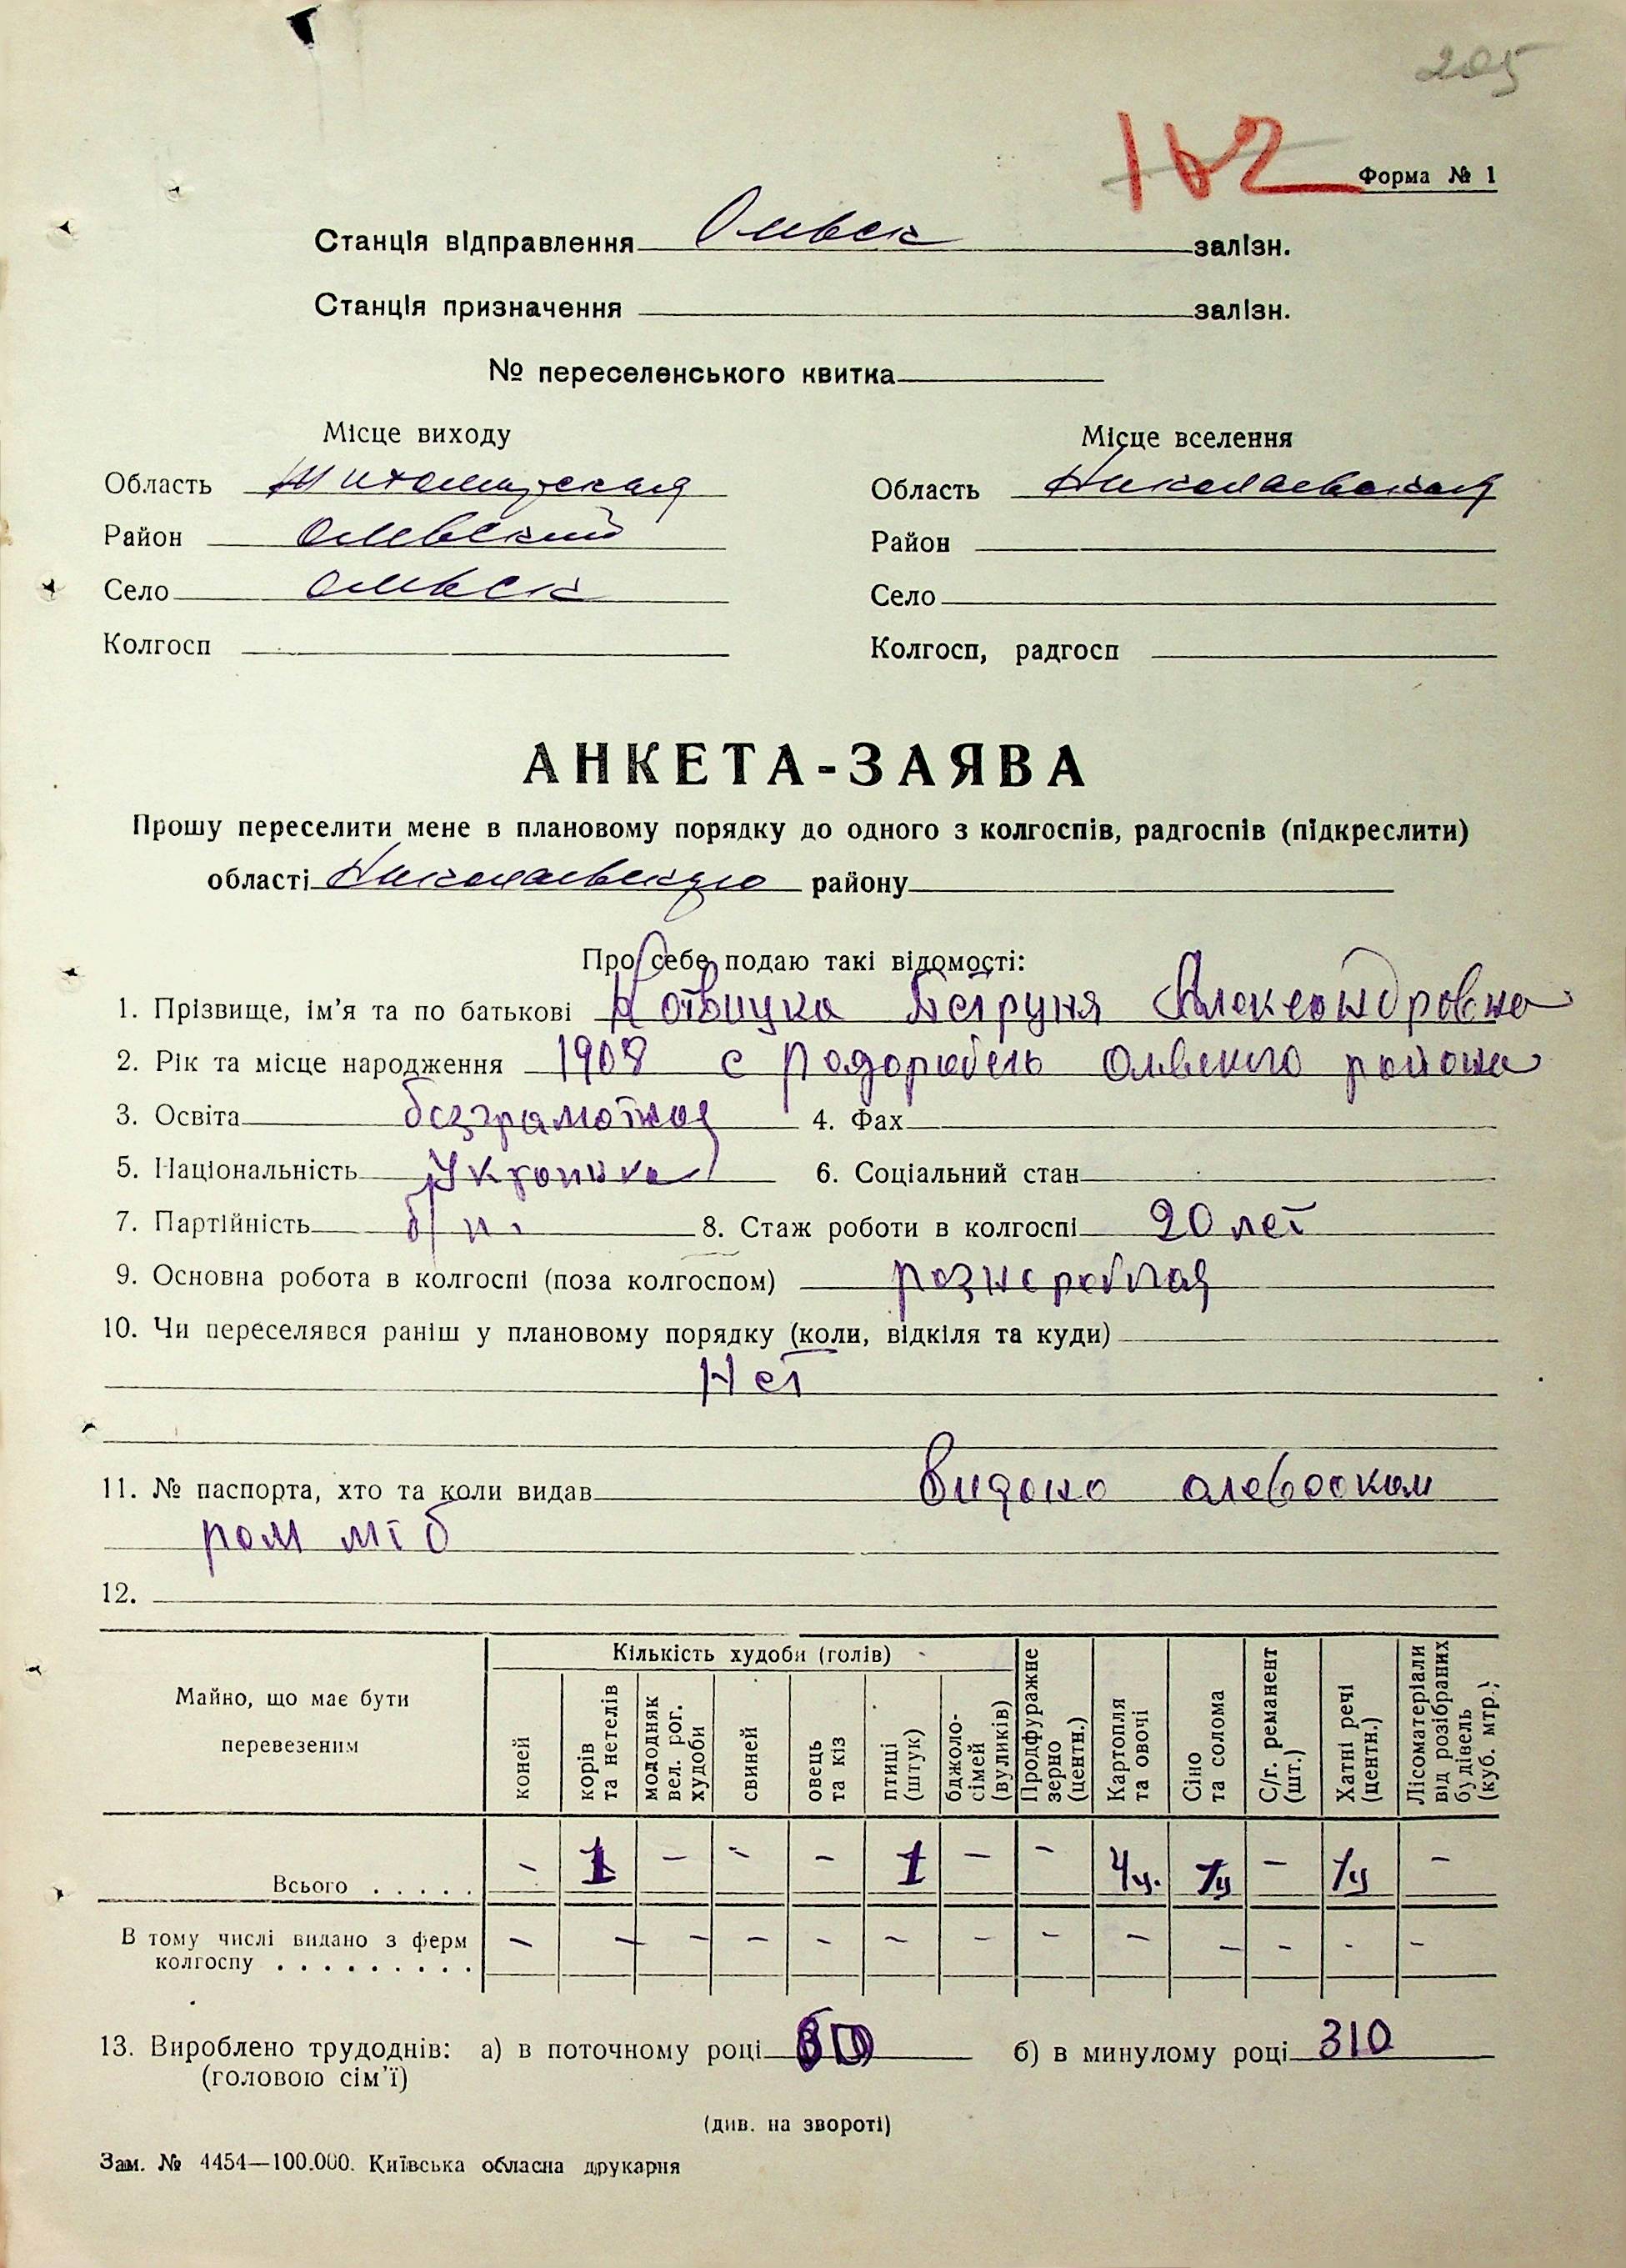 205
162
Форма № 1
Станція відправлення Олевск залізн.
Станція призначення залізн.
№ переселенського квитка
Місце виходу
Місце вселення
Область Житомирская
Область Николаевская
Район Олевский
Район
Село Олевск
Село
Колгосп
Колгосп, радгосп
АНКЕТА-ЗАЯВА
Прошу переселити мене в плановому порядку до одного з колгоспів, радгоспів (підкреслити)
області Николаевскую району
Про себе подаю такі відомості:
1. Прізвище, ім'я та по батькові Котвицка Петруня Александровна
2. Рік та місце народження 1908 с Олевского района
3. Освіта безграмотная 4. Фах
5. Національність Украинка 6. Соціальний стан
7. Партійність б/п. 8. Стаж роботи в колгоспі 20 лет
9. Основна робота в колгоспі (поза колгоспом) разнорабочая
10. Чи переселявся раніш у плановому порядку (коли, відкіля та куди)
Нет
11. № паспорта, хто та коли видав Видано
12.
Майно, що має бути перевезеним
Кількість худоби (голів)
коней
корів та нетелів
молодняк вел. рог. худоби
свиней
овець та кіз
птиці (штук)
бджоло-сімей (вуликів)
Продфуражне зерно (центн.)
Картопля та овочі
Сіно та солома
С/г. реманент (шт.)
Хатні речі (центн.)
Лісоматеріали від розібраних будівель (куб. мтр.)
Всього . . . . . - 1 - - - 1 - - 4ц. 1ц - 1ц -
В тому числі видано з ферм
колгоспу . . . . . . . . . - - - - - - - - - - - - -
13. Вироблено трудоднів: а) в поточному році б) в минулому році 310
(головою сім'ї)
(див. на звороті)
Зам. № 4454—100.000. Київська обласна друкарня